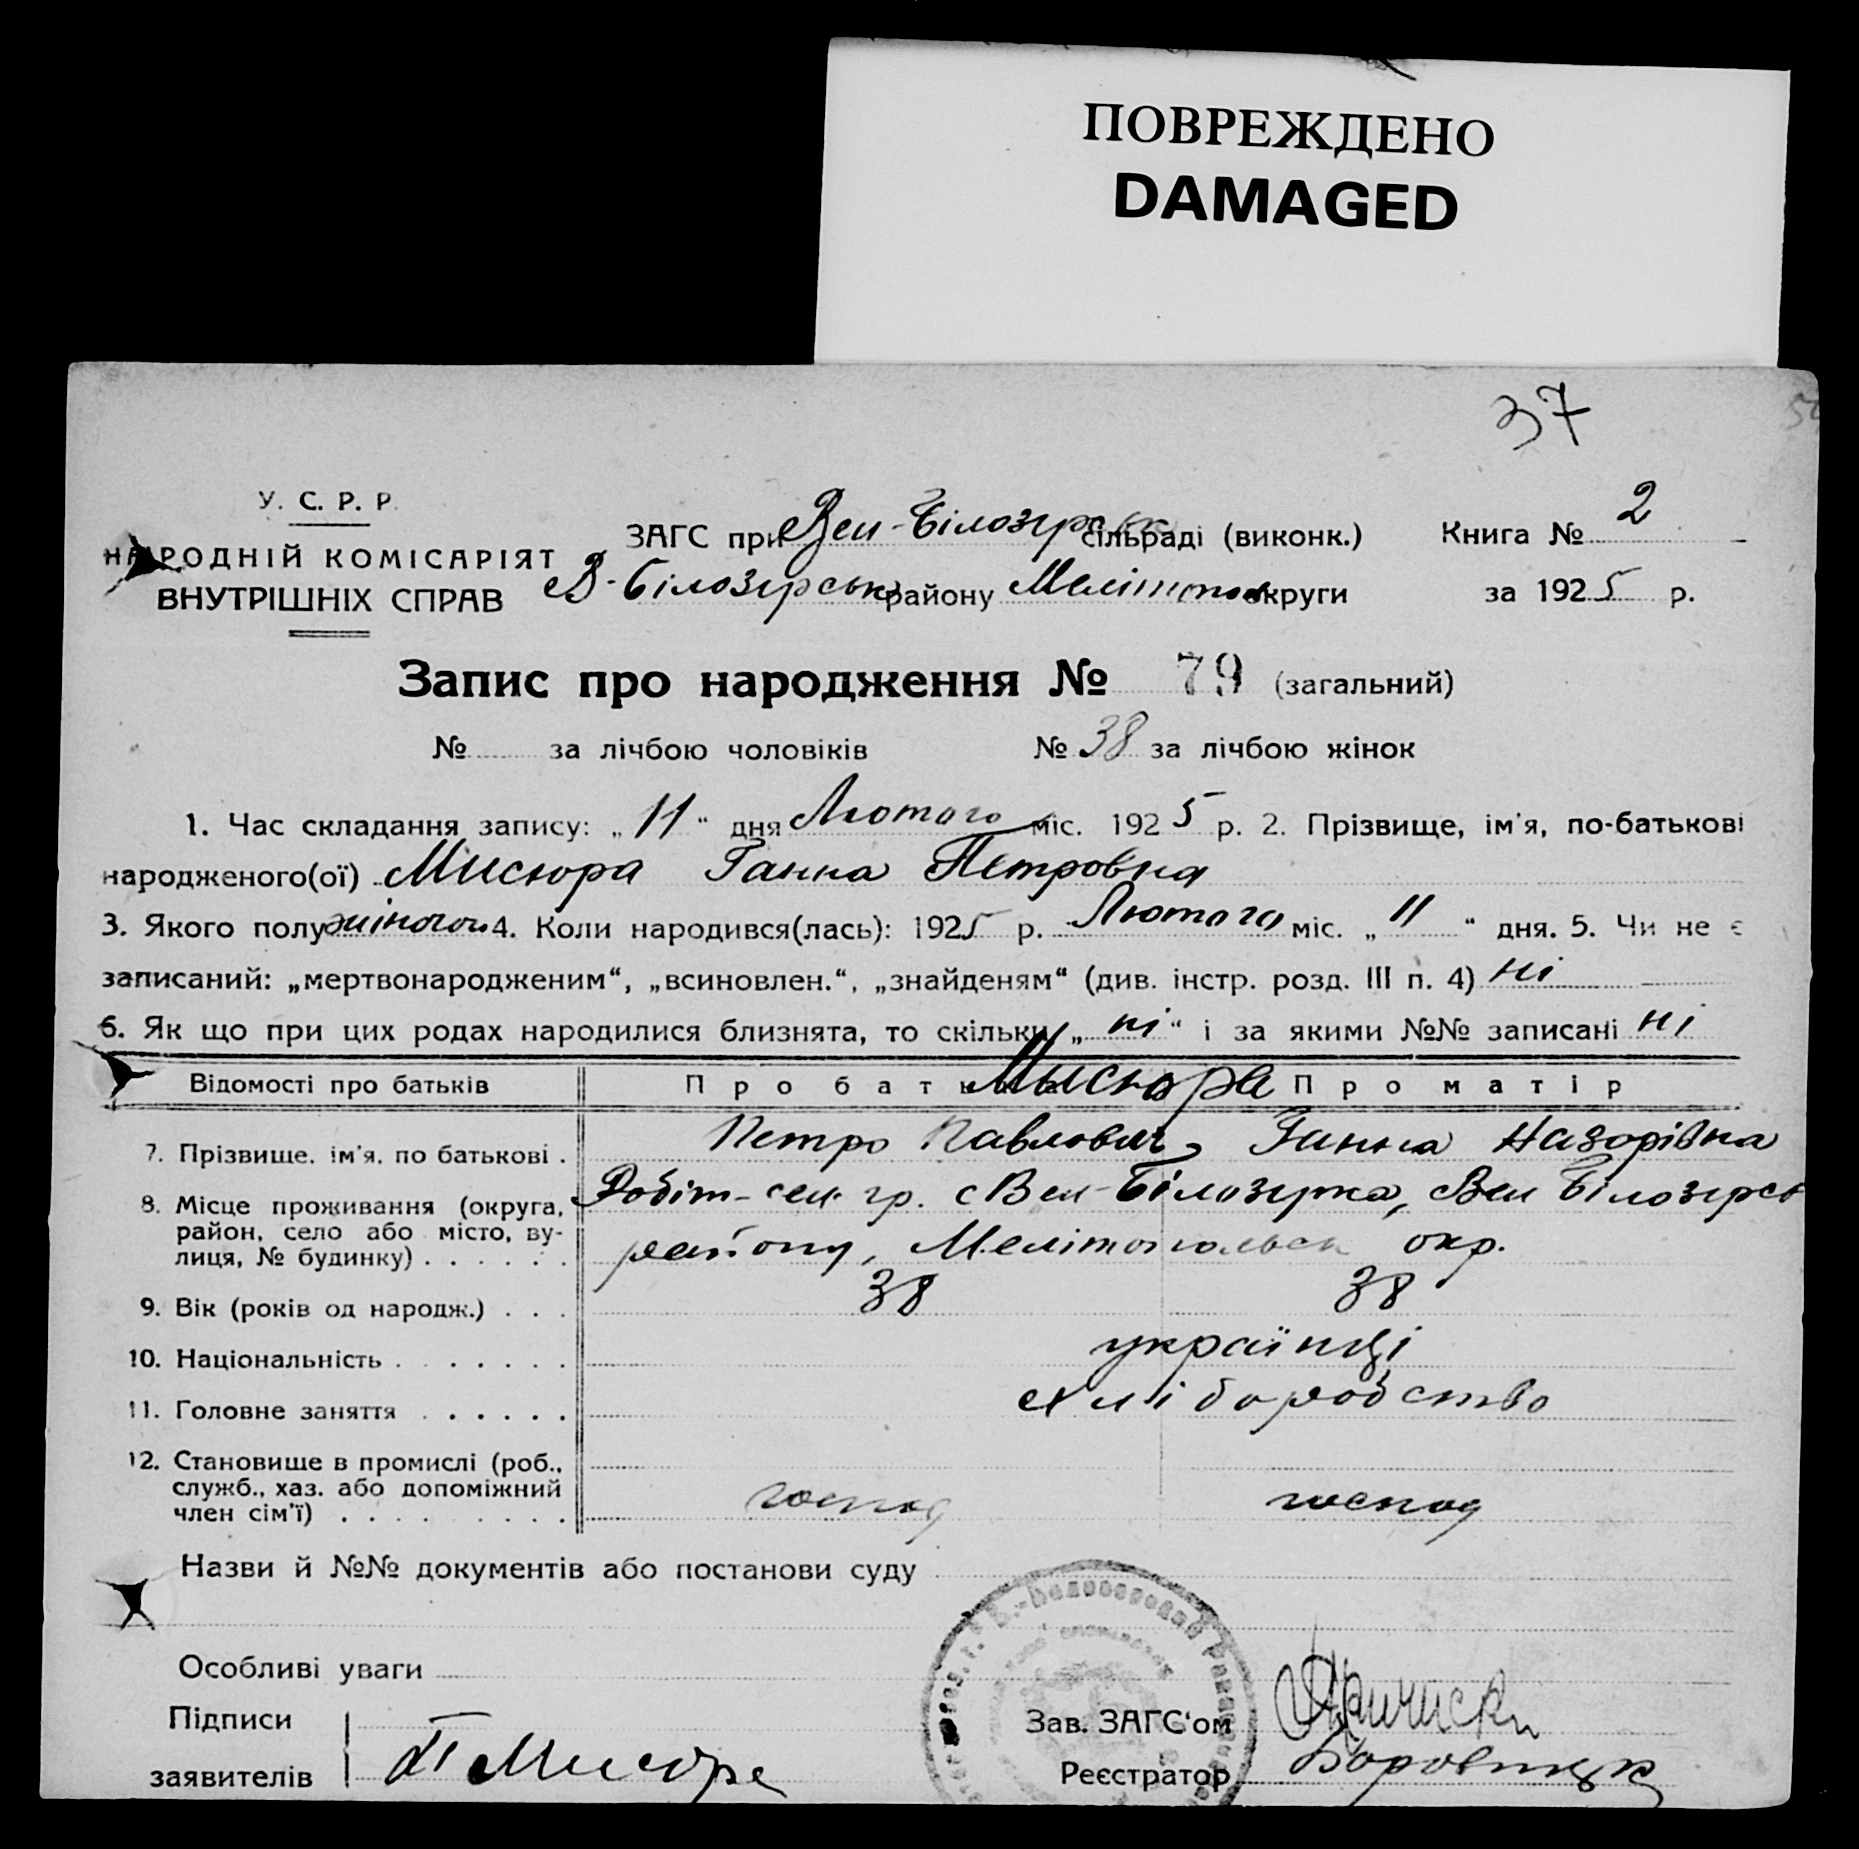 ПОВРЕЖДЕНО
DAMAGED
37
У. С. Р. Р.
НАРОДНІЙ КОМІСАРІЯТ
ВНУТРІШНІХ СПРАВ
ЗАГС при Вел-Білозерськ сільраді (виконк.) Книга № 2
В-Білозерськ району Мелітоп округи за 1925 р.
Запис про народження № 79 (загальний)
№ за лічбою чоловіків № 38 за лічбою жінок
1. Час складання запису: „11“ дня Лютого міс. 1925 р. 2. Прізвище, ім'я, по-батькові
народженого(ої) Мисюра Ганна Петровна
3. Якого полу жіночого 4. Коли народився(лась): 1925 р. Лютого міс. „11“ дня. 5. Чи не є
записаний: „мертвонародженим“, „всиновлен.“, „знайденям“ (див. інстр. розд. III п. 4) ні
6. Як що при цих родах народилися близнята, то скільки „ні“ і за якими №№ записані ні
Відомості про батьків Про батька Мисюра Про матір
7. Прізвище, ім'я, по батькові . Петро Павлович, Ганна Назарівна
8. Місце проживання (округа, район, село або місто, вулиця, № будинку) Робіт-сел. гр. с Вел-Білозерка, Вел Білозерсь
району, Мелітопольськ окр.
9. Вік (років од народж.) . . . 38 38
10. Національність . . . . . . . українці
11. Головне заняття . . . . . . хліборобство
12. Становище в промислі (роб., служб., хаз. або допоміжний член сім'ї) господ господ
Назви й №№ документів або постанови суду
Особливі уваги
Підписи
заявителів П Мисюра
Зав. ЗАГС'ом
Реєстратор